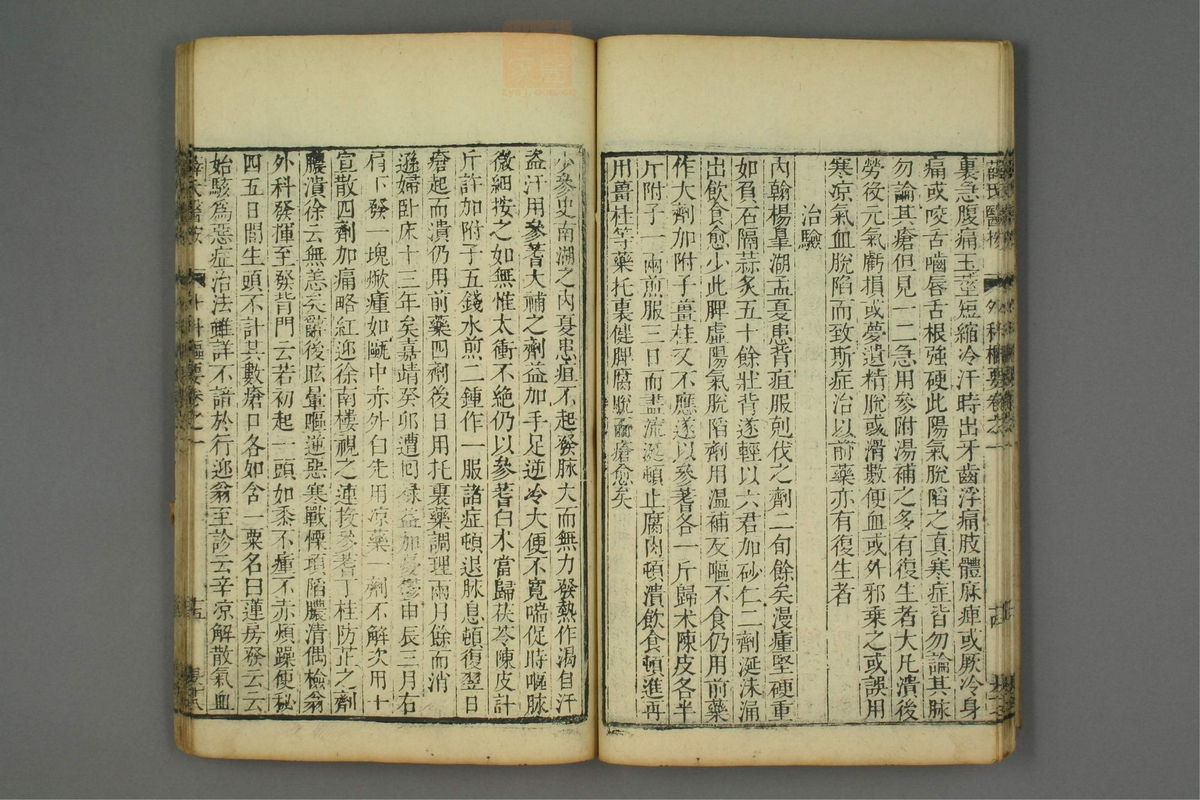 薛氏醫按 外科樞要卷之一
裏急腹痛玉莖短縮冷汗時出牙齒浮痛肢體麻痺或厥冷身
痛或咬舌嚙唇舌根強硬此陽氣脫陷之真寒症皆勿論其脉
勿論其瘡但見一二急用參附湯補之多有復生者大凡潰後
勞役元氣虧損或夢遺精脫或滑數便血或外邪乗之或誤用
寒凉氣血脫陷而致斯症治以前藥亦有復生者
治驗
内翰楊皋湖孟夏患背疽服剋伐之劑二旬餘矣漫腫堅硬重
如負石隔蒜炙五十餘壯背遂輕以六君加砂仁二劑涎沫涌
出飲食愈少此脾虛陽氣脫陷劑用溫補反嘔不食仍用前藥
作大劑加附子薑桂又不應遂以參芪各一斤歸术陳皮各半
斤附子一兩煎服三日而盡流涎頓止腐肉頓潰飲食頓進再
用薑桂等藥托裏健脾腐脫而瘡愈矣
少參史南湖之内夏患疽不起發脉大而無力發熱作渴自汗
盗汗用參芪大補之劑益加手足逆冷大便不寔喘促時嘔脉
微細按之如無惟太衝不絶仍以參芪白术當歸茯苓陳皮計
斤許加附子五錢水煎二鍾作一服諸症頓退脉息頓復翌日
瘡起而潰仍用前藥四劑後日用托裏藥調理兩月餘而消
遜婦卧床十三年矣嘉靖癸卯遭回祿益加憂鬱甲辰三月右
肩下發一塊焮腫如甌中赤外白先用凉藥一劑不解次用十
宣散四劑加痛略紅迎徐南樓視之連投參芪丁桂防芷之劑
膿潰徐云無恙矣辭後眩暈嘔逆惡寒戰慄頂陷膿清偶檢翁
外科發揮至發背門云若初起一頭如黍不腫不赤煩躁便秘
四五日間生頭不計其數瘡口各如含一粟名曰蓮房發云云
始駭為惡症治法雖詳不諳於行迎翁至診云辛凉解散氣血
薛氏醫按 外科樞要卷之一